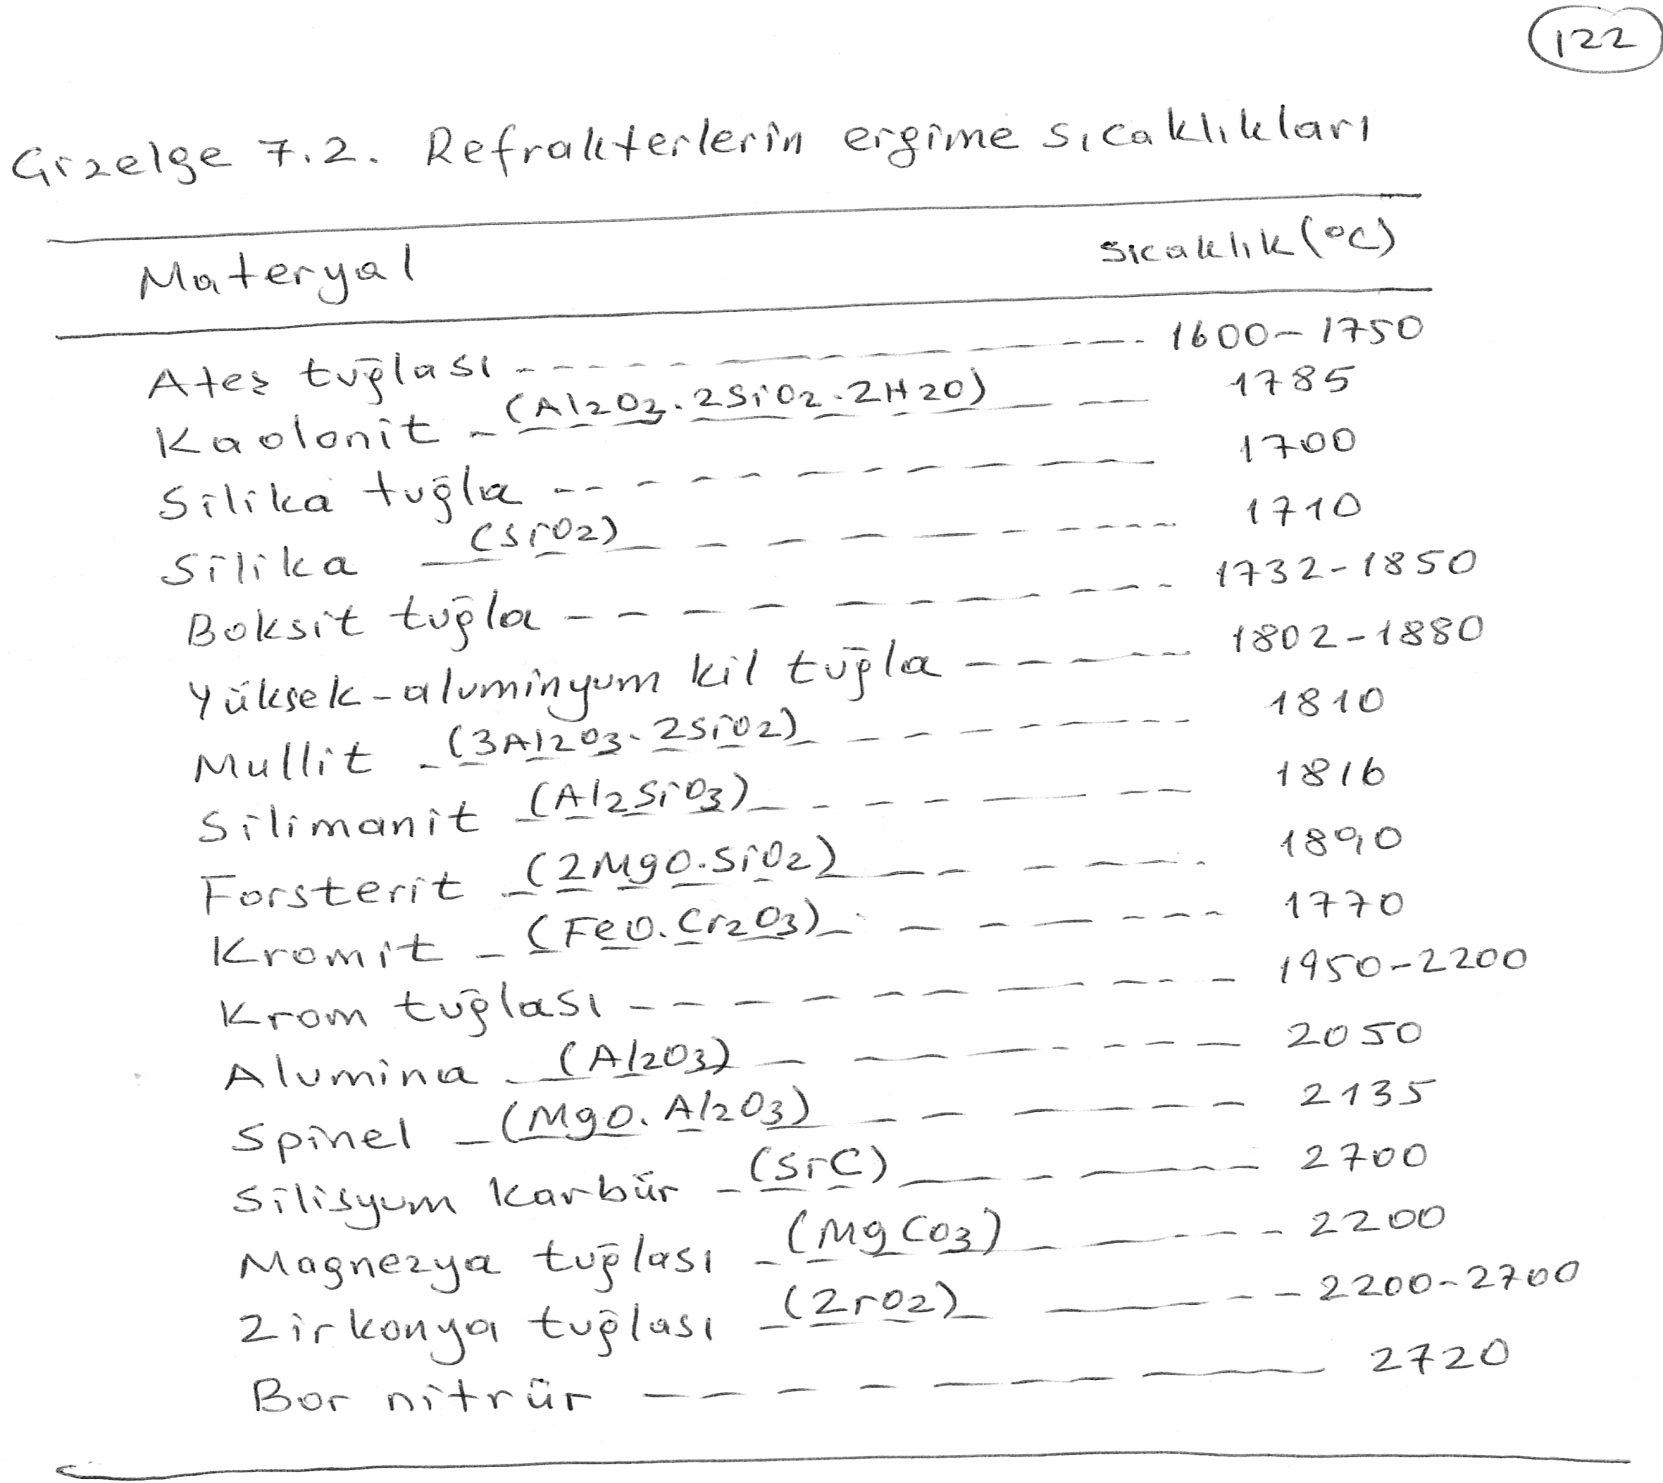 122
Çizelge 7.2. Refrakterlerin ergime sıcaklıkları
Materyal Sıcaklık (°C)
Ateş tuğlası ---------- 1600-1750
Kaolonit - (Al2O3.2SiO2.2H2O) -- 1785
Silika tuğla ---------- 1700
Silika (SiO2) ---------- 1710
Boksit tuğla ---------- 1732-1850
Yüksek-aluminyum kil tuğla ------ 1802-1880
Mullit - (3Al2O3.2SiO2) ------ 1810
Silimanit (Al2SiO3) ------ 1816
Forsterit (2MgO.SiO2) ------ 1890
Kromit - (FeO.Cr2O3) ------ 1770
Krom tuğlası ---------- 1950-2200
Alumina (Al2O3) ------ 2050
Spinel - (MgO.Al2O3) ------ 2135
Silisyum karbür - (SiC) ------ 2700
Magnezya tuğlası - (MgCO3) ------ 2200
Zirkonya tuğlası - (ZrO2) ------ 2200-2700
Bor nitrür ---------- 2720